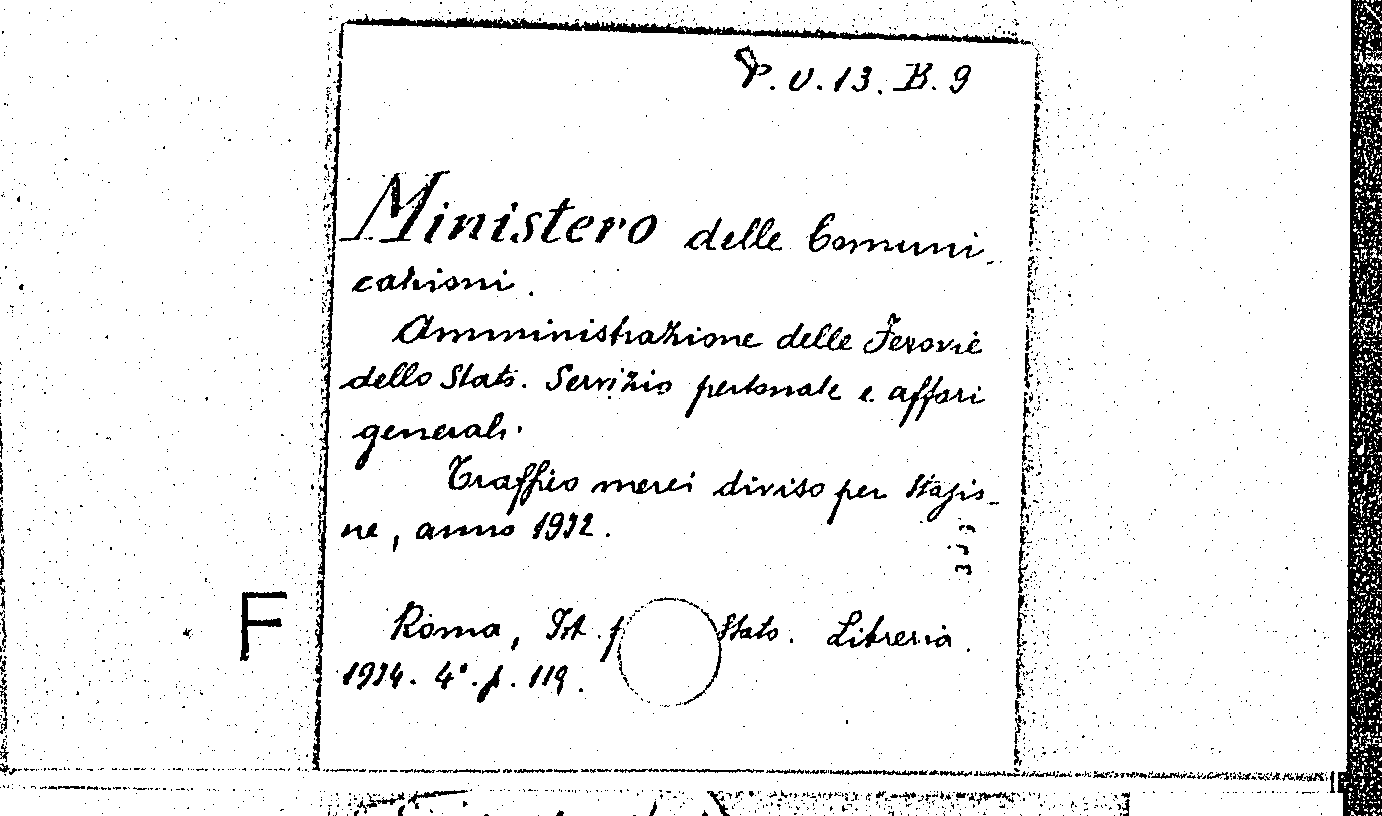 P.V.13.B.9
Ministero delle Comuni-
cazioni.
Amministrazione delle Ferovie
dello Stato. Servizio personale e affari
generali.
Traffico merci diviso per stazio-
ne, anno 1932.
F
Roma, Ist. p Stato. Libreria.
1934. 4°. p. 119.